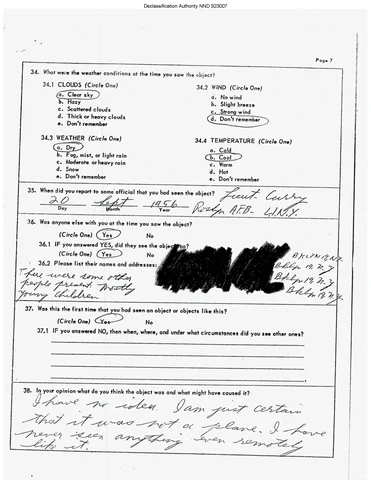 Declassification Authority NND 923007
Page 7
34. What were the weather conditions at the time you saw the object?
34.1 CLOUDS (Circle One)
a. Clear sky
b. Hazy
c. Scattered clouds
d. Thick or heavy clouds
e. Don't remember
34.2 WIND (Circle One)
a. No wind
b. Slight breeze
c. Strong wind
d. Don't remember
34.3 WEATHER (Circle One)
a. Dry
b. Fog, mist, or light rain
c. Moderate or heavy rain
d. Snow
e. Don't remember
34.4 TEMPERATURE (Circle One)
a. Cold
b. Cool
c. Warm
d. Hot
e. Don't remember
35. When did you report to some official that you had seen the object?
Lieut. Curry
20 Sept 1956
Day Month Year
Roslyn A.F.B. L.I.N.Y.
36. Was anyone else with you at the time you saw the object?
(Circle One) Yes No
36.1 IF you answered YES, did they see the object too?
(Circle One) Yes No
36.2 Please list their names and addresses:
There were some other
people present mostly
young children
Bklyn N.Y.
Bklyn N.Y.
Bklyn N.Y.
37. Was this the first time that you had seen an object or objects like this?
(Circle One) Yes No
37.1 IF you answered NO, then when, where, and under what circumstances did you see other ones?
38. In your opinion what do you think the object was and what might have caused it?
I have no idea. I am just certain
that it was not a plane. I have
never seen anything even remotely
like it.